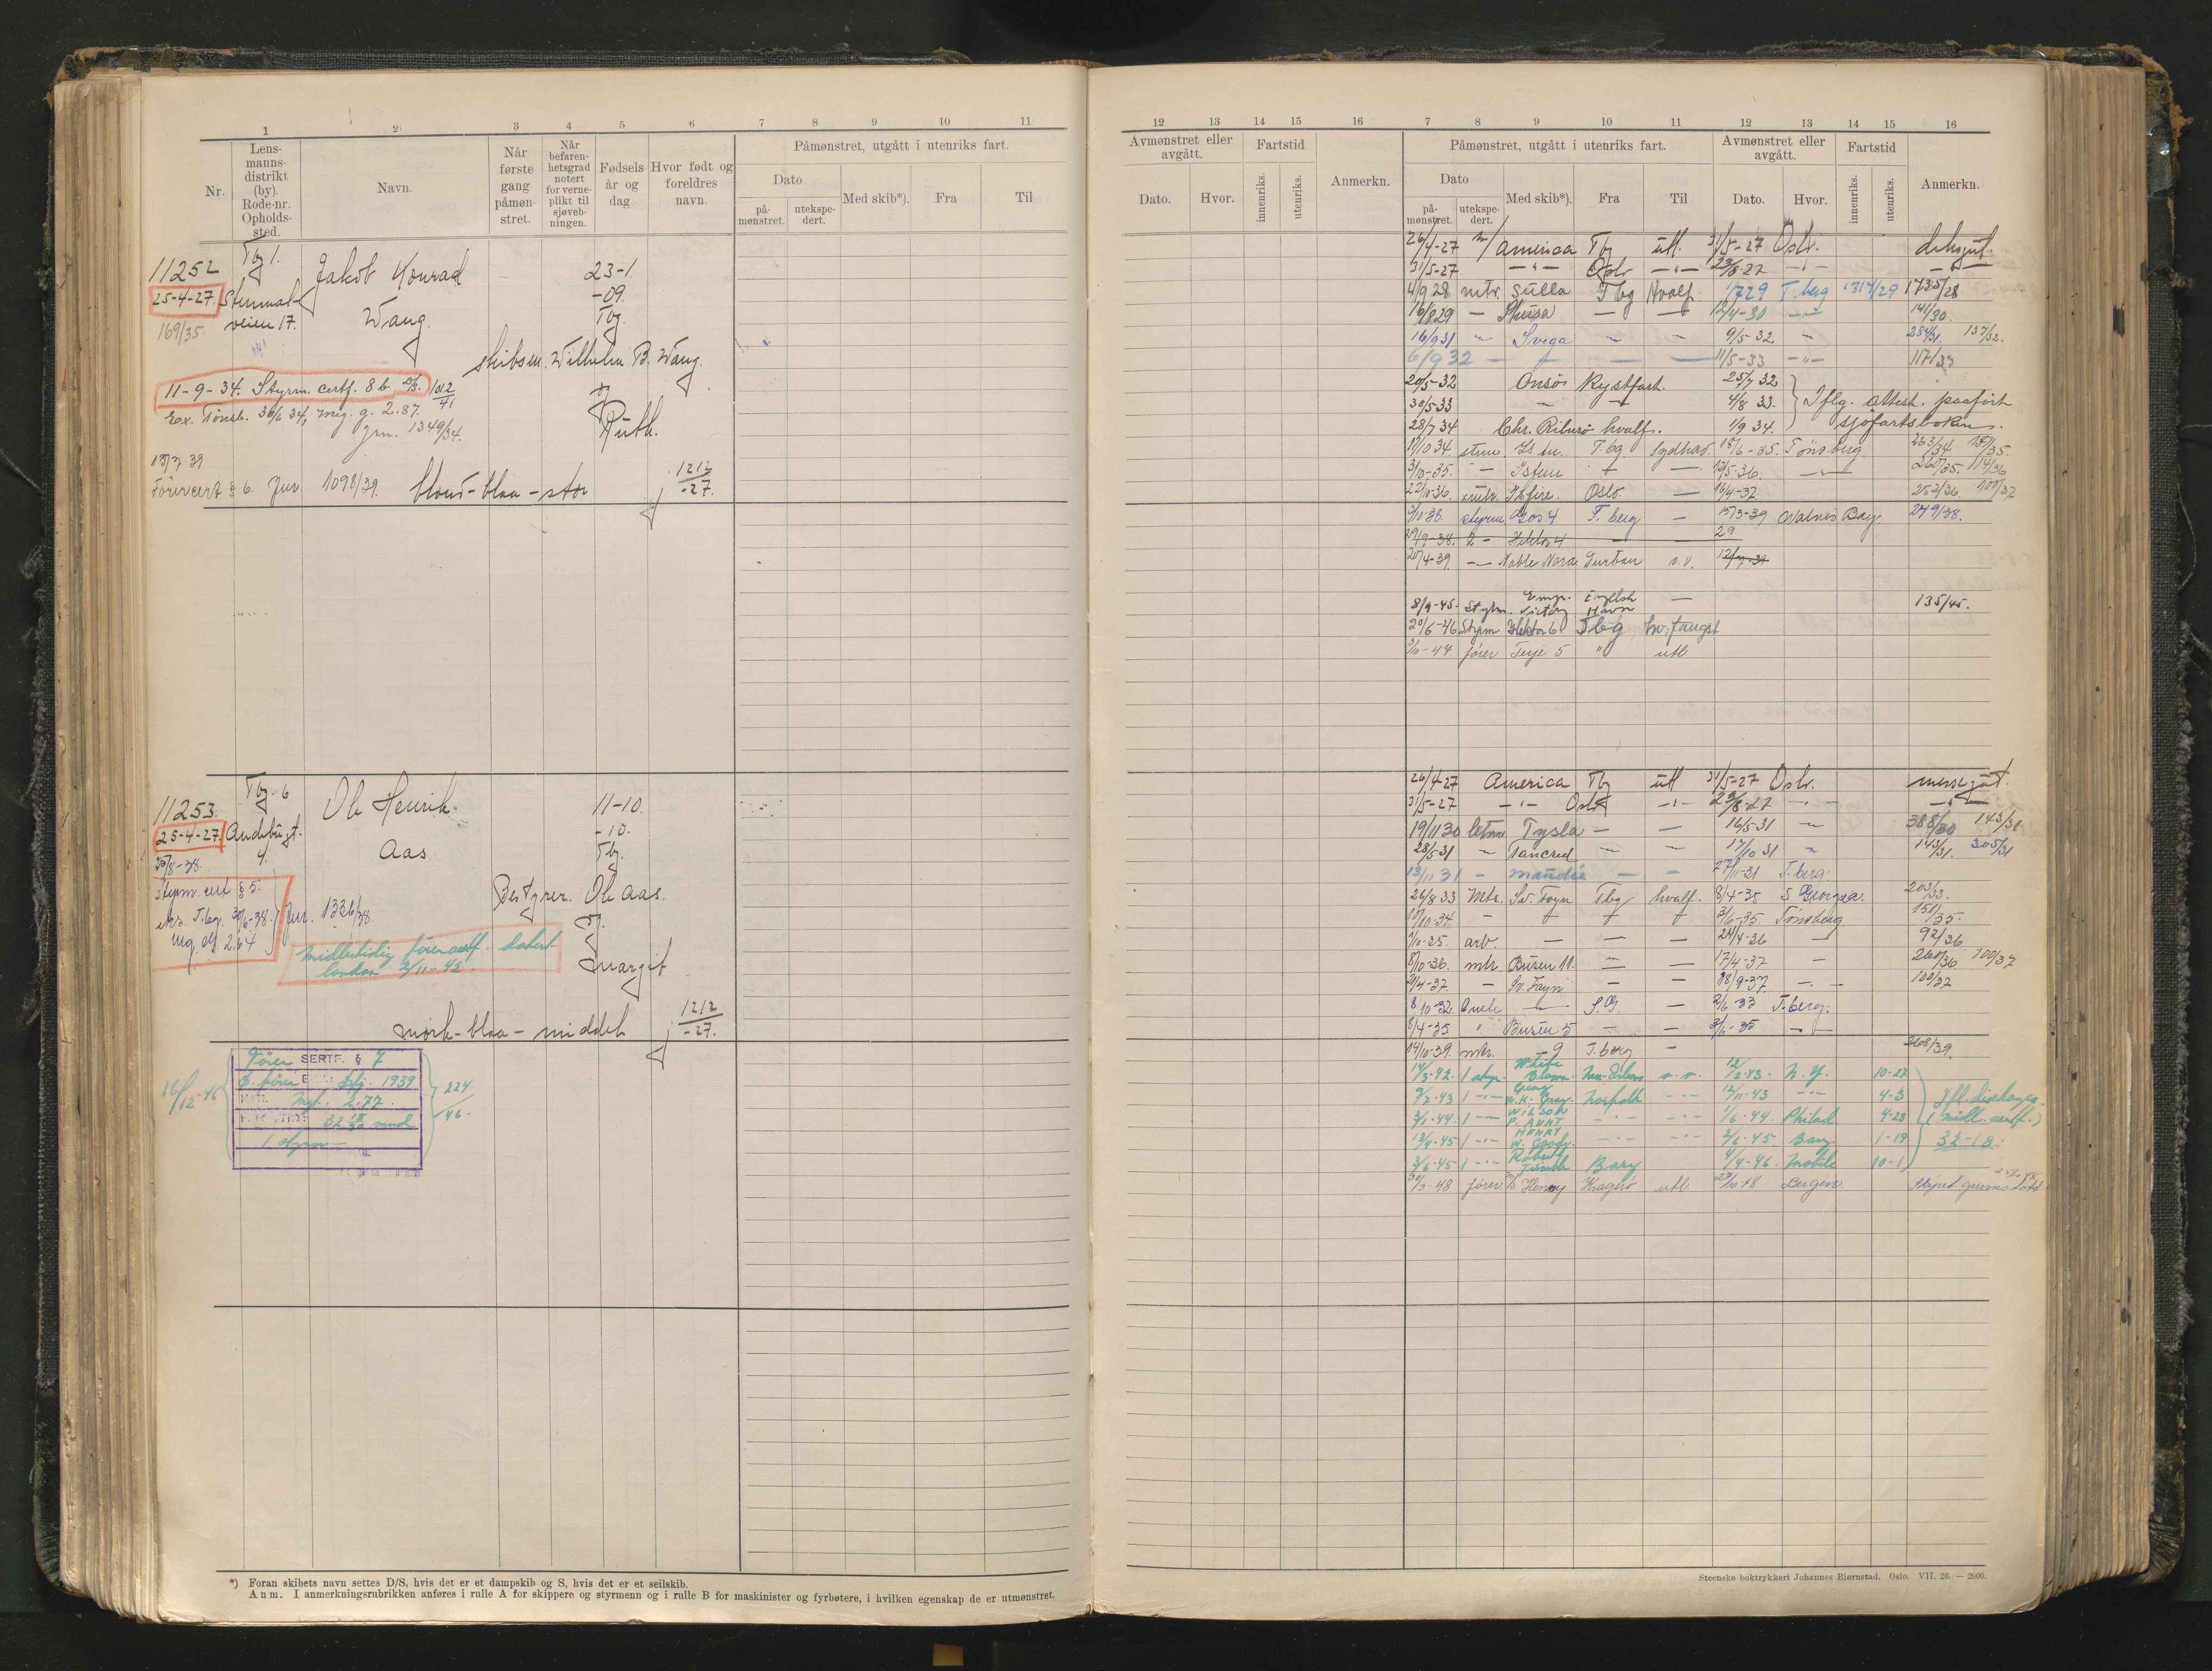 1 2 3 4 5 6 7 8 9 10 11
Nr.
Lens-
manns-
distrikt
(by).
Rode-nr.
Opholds-
sted.
Navn.
Når
første
gang
påmøn-
stret.
Når
befaren-
hetsgrad
notert
for verne-
plikt til
sjøveb-
ningen.
Fødsels-
år og
dag.
Hvor født og
foreldres
navn.
Påmønstret, utgått i utenriks fart.
Dato
på-
mønstret.
utekspe-
dert.
Med skib*).
Fra
Til
Tbg 1.
11252 Jakob Konrad 23-1
25-4-27. -09.
veien 17. Wang. Tbg.
169/35.
skibsm. Wilhelm B. Wang.
11-9-34. Styrm. certf. 8b 1012/41
Ex. Tønsb. 30/6 34, mig. g. 2.87.
Jrn. 1349/34.
Ruth.
Førercert § 6. Jur. 1098/39. blond-blaa-stor 1212/-27.
Tbg. 6
11253. Ole Henrik 11-10.
25-4-27. -10.
4. Aas Tbg.
25/8-38.
Bestyrer. Ole Aas.
Styrm cert § 5.
Nrs. T.bg. 30/6-38. Jur. 1336/38.
Mg. af 2.64
Midlertidig førercertf. datert
London 2/11-42.
Margit
mørk-blaa-middel 1212/-27.
Fører SERTF. § 7
1939
16/12-46 Mgk. 2.77. 224/46.
1 styrm
*) Foran skibets navn settes D/S, hvis det er et dampskib og S, hvis det er et seilskib.
Anm. I anmerkningsrubrikken anføres i rulle A for skippere og styrmenn og i rulle B for maskinister og fyrbøtere, i hvilken egenskap de er utmønstret.
12 13 14 15 16 7 8 9 10 11 12 13 14 15 16
Avmønstret eller
avgått.
Fartstid
Dato.
Hvor.
innenriks.
utenriks.
Anmerkn.
Påmønstret, utgått i utenriks fart.
Dato
på-
mønstret.
utekspe-
dert.
Med skib*).
Fra
Til
Avmønstret eller
avgått.
Dato.
Hvor.
Fartstid
innenriks.
utenriks.
Anmerkn.
26/4-27 m/ America Tbg utl. 31/5-27 Oslo. deksgut.
31/5-27 -"- Oslo -"- -"-
4/9 28 mtr. Sulla Tbg Hvalf. 1/7 29 T.berg 1317/29 1735/28
16/8 29 - Thusa - - 12/4-30 141/30.
16/9 31 " Svega - - 9/5-32 - 284/31. 137/32.
6/9 32 - - - - 11/5-33 -"- 117/33
20/5-32 Onsø Kystfart. 25/7 32
30/5 33 4/8 33. Iflg. attest. paaført
28/7 34 Chr. Ribusø hvalf. 1/9 34. sjøfartsboken.
17/10 34. T.bg Sydhav. 18/6-35. Tønsberg 263/34
3/10-35. - Istern - 13/5-36. 260/35. 114/36
22/10-36. Oslo. - 16/4-37 252/36 100/37
3/10-38. styrm Gos 4 T.berg - 15/3-39 Walvis Bay. 249/38.
29/9-38. 2 - Hektor 4 - - 29
20/4-39. -"- Noble Nora Durban o.v. 12/7-39
8/9-45. Styrm. Emp. Victory Engelsk Havn - 135/45.
20/6-46 Styrm Hektor 6 Tbg hv.fangst
3/10-47 fører Terje 5 " utl.
26/4-27 America Tbg utl 31/5-27 Oslo. messegut.
31/5-27 -"- Oslo -"- 23/8-27 -"- -"-
19/11 30 letm Tysla - - 16/5-31 - 388/30 143/31
28/5 31 " Tancred - - 17/10 31 " 143/31. 305/31
13/11 31 - - - 27/11-31 T.berg.
26/8 33 Mtr. Sv. Foyn Tbg hvalf. 8/4-35 S Georgia. 203/33.
10/10-34. - 3/6-35. Tønsberg 151/35.
1/10-35. arb. - - - 24/4-36 - 92/36
8/10-36. mtr. Busen 11. - - 17/4-37 - 260/36. 100/37
21/4-37. - Sv. Foyn - - 18/9-37 - 100/37
8/10-32. - S.G. - 2/6-33 T.berg.
8/4-35 " Busen 5 - - 3/6-35 -
14/10-39. mtr. - 9 T.berg - 268/39.
14/3-42. 1 styr. White Blossom New Orleans o.v. 12/2-43. N.Y. 10-27
9/7-43 1 -"- W.K. Norfolk -"- 12/11-43 -"- 4-3
3/1-44 1 -"- WILSON P. HUNT -"- -"- 1/6-44. Philad. 4-28
13/4-45 1 -"- HENRY W. Grady. -"- -"- 2/6-45 1-19 32-18
3/6-45 1 -"- Robert -"- 4/4-46. Mobile 10-1
30/3-48 fører Henry Kragerø utl Bergen
Steenske boktrykkeri Johannes Bjørnstad. Oslo. VII. 26. — 2000.